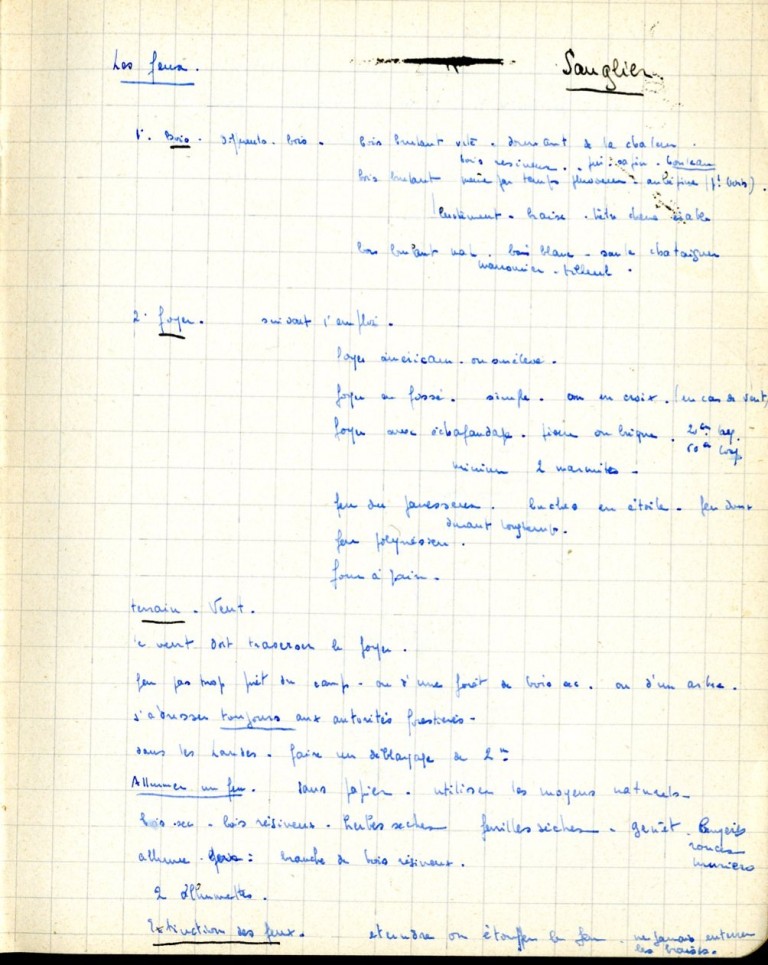 Les feux.
Sanglier
1°. Bois. différents bois. bois brulant vite. donnant de la chaleur.
bois resineux. pin. sapin. bouleau
bois brulant même par temps pluvieux. aubépine (pt bois).
lentement. braise. hêtre chene érable
bois brulant mal. bois blanc. saule chataigner
marronier. tilleul.
2° foyer. suivant l'emploi.
foyer américain. ou surélevé.
foyer en fossé. simple. ou en croix. (en cas de vent)
foyer avec échafaudage. pierre ou brique. 20 cm
minimum 2 marmites.
feu du paresseux. buches en étoile. feu doux
durant longtemps.
feu polynésien.
four à pain.
terrain. Vent.
le vent doit traverser le foyer.
feu pas trop prêt du camp. ou d'une forêt de bois sec. ou d'un arbre.
s'adresser toujours aux autorités forestières.
dans les Landes. faire un déblayage de 2m
Allumer un feu. sans papier. utiliser les moyens naturels.
bois sec. bois résineux. herbes seches feuilles sèches. genêt. bruyères
ronces
muriers
allume feux: branche de bois résineux.
2 allumettes.
Extinction des feux. eteindre ou étouffer le feu. ne jamais enterrer
les braises.